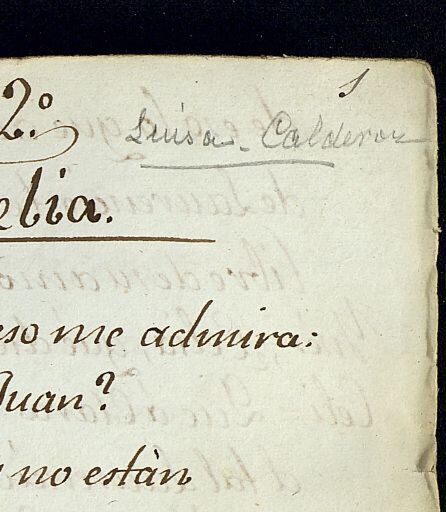 1
2.º Luisa. Calderon
elia.
eso me admira:
Juan?
no están